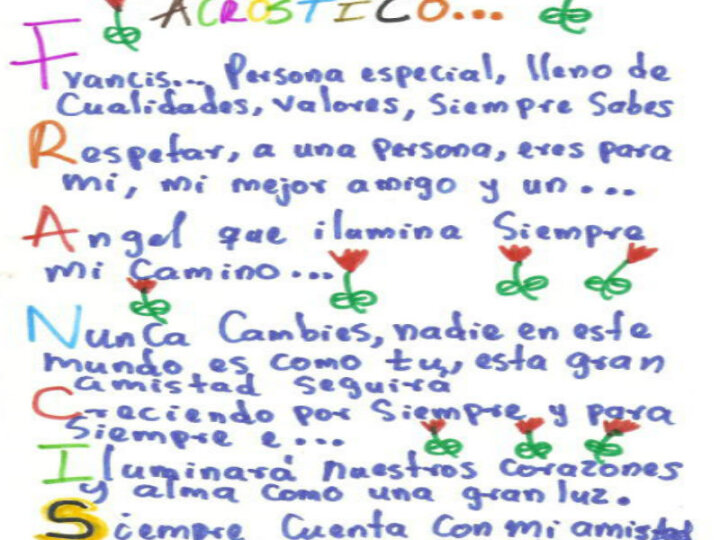 ACROSTICO...
Francis... Persona especial, lleno de
Cualidades, valores, Siempre Sabes
Respetar, a una Persona, eres para
mi, mi mejor amigo y un...
Angel que ilumina Siempre
mi Camino...
Nunca Cambies, nadie en este
mundo es como tu, esta gran
amistad seguira
Creciendo por Siempre y para
Siempre e...
Iluminará nuestros corazones
y alma como una gran luz.
Siempre Cuenta Con mi amistad